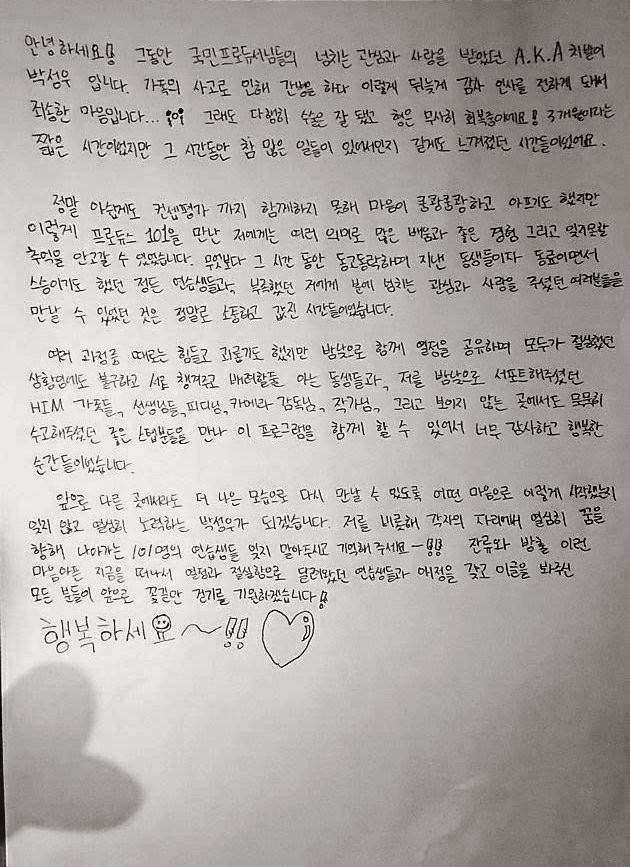 안녕하세요! 그동안 국민프로듀서님들의 넘치는 관심과 사랑을 받았던 A.K.A 치발이
박성우 입니다. 가족의 사고로 인해 간병을 하다 이렇게 뒤늦게 감사 인사를 전하게 돼서
죄송한 마음입니다... 그래도 다행히 수술은 잘 됐고 형은 무사히 회복중이에요! 3개월이라는
짧은 시간이었지만 그 시간동안 참 많은 일들이 있어서인지 길게도 느껴졌던 시간들이었어요.
정말 아쉽게도 컨셉평가 까지 함께하지 못해 마음이 쿵쾅쿵쾅하고 아프기도 했지만
이렇게 프로듀스 101을 만난 저에게는 여러 의미로 많은 배움과 좋은 경험 그리고 잊지못할
추억을 안고갈 수 있었습니다. 무엇보다 그 시간 동안 동고동락하며 지낸 동생들이자 동료이면서
스승이기도 했던 정든 연습생들과, 부족했던 저에게 분에 넘치는 관심과 사랑을 주셨던 여러분들을
만날 수 있었던 것은 정말로 소중하고 값진 시간들이었습니다.
여러 과정중 때로는 힘들고 괴롭기도 했지만 밤낮으로 함께 열정을 공유하며 모두가 절실했던
상황임에도 불구하고 서로 챙겨주고 배려할줄 아는 동생들과, 저를 밤낮으로 서포트해주셨던
HIM 가족들, 선생님들, 피디님, 카메라 감독님, 작가님, 그리고 보이지 않는 곳에서도 묵묵히
수고해주셨던 좋은 스텝분들을 만나 이 프로그램을 함께 할 수 있어서 너무 감사하고 행복한
순간들이었습니다.
앞으로 다른 곳에서라도 더 나은 모습으로 다시 만날 수 있도록 어떤 마음으로 이렇게 시작했는지
잊지 않고 열심히 노력하는 박성우가 되겠습니다. 저를 비롯해 각자의 자리에서 열심히 꿈을
향해 나아가는 101명의 연습생들 잊지 말아주시고 기억해 주세요~!! 잔류와 방출 이런
마음아픈 지금을 떠나서 열정과 절실함으로 달려왔던 연습생들과 애정을 갖고 이글을 봐주신
모든 분들이 앞으로 꽃길만 걷기를 기원하겠습니다!
행복하세요~!!